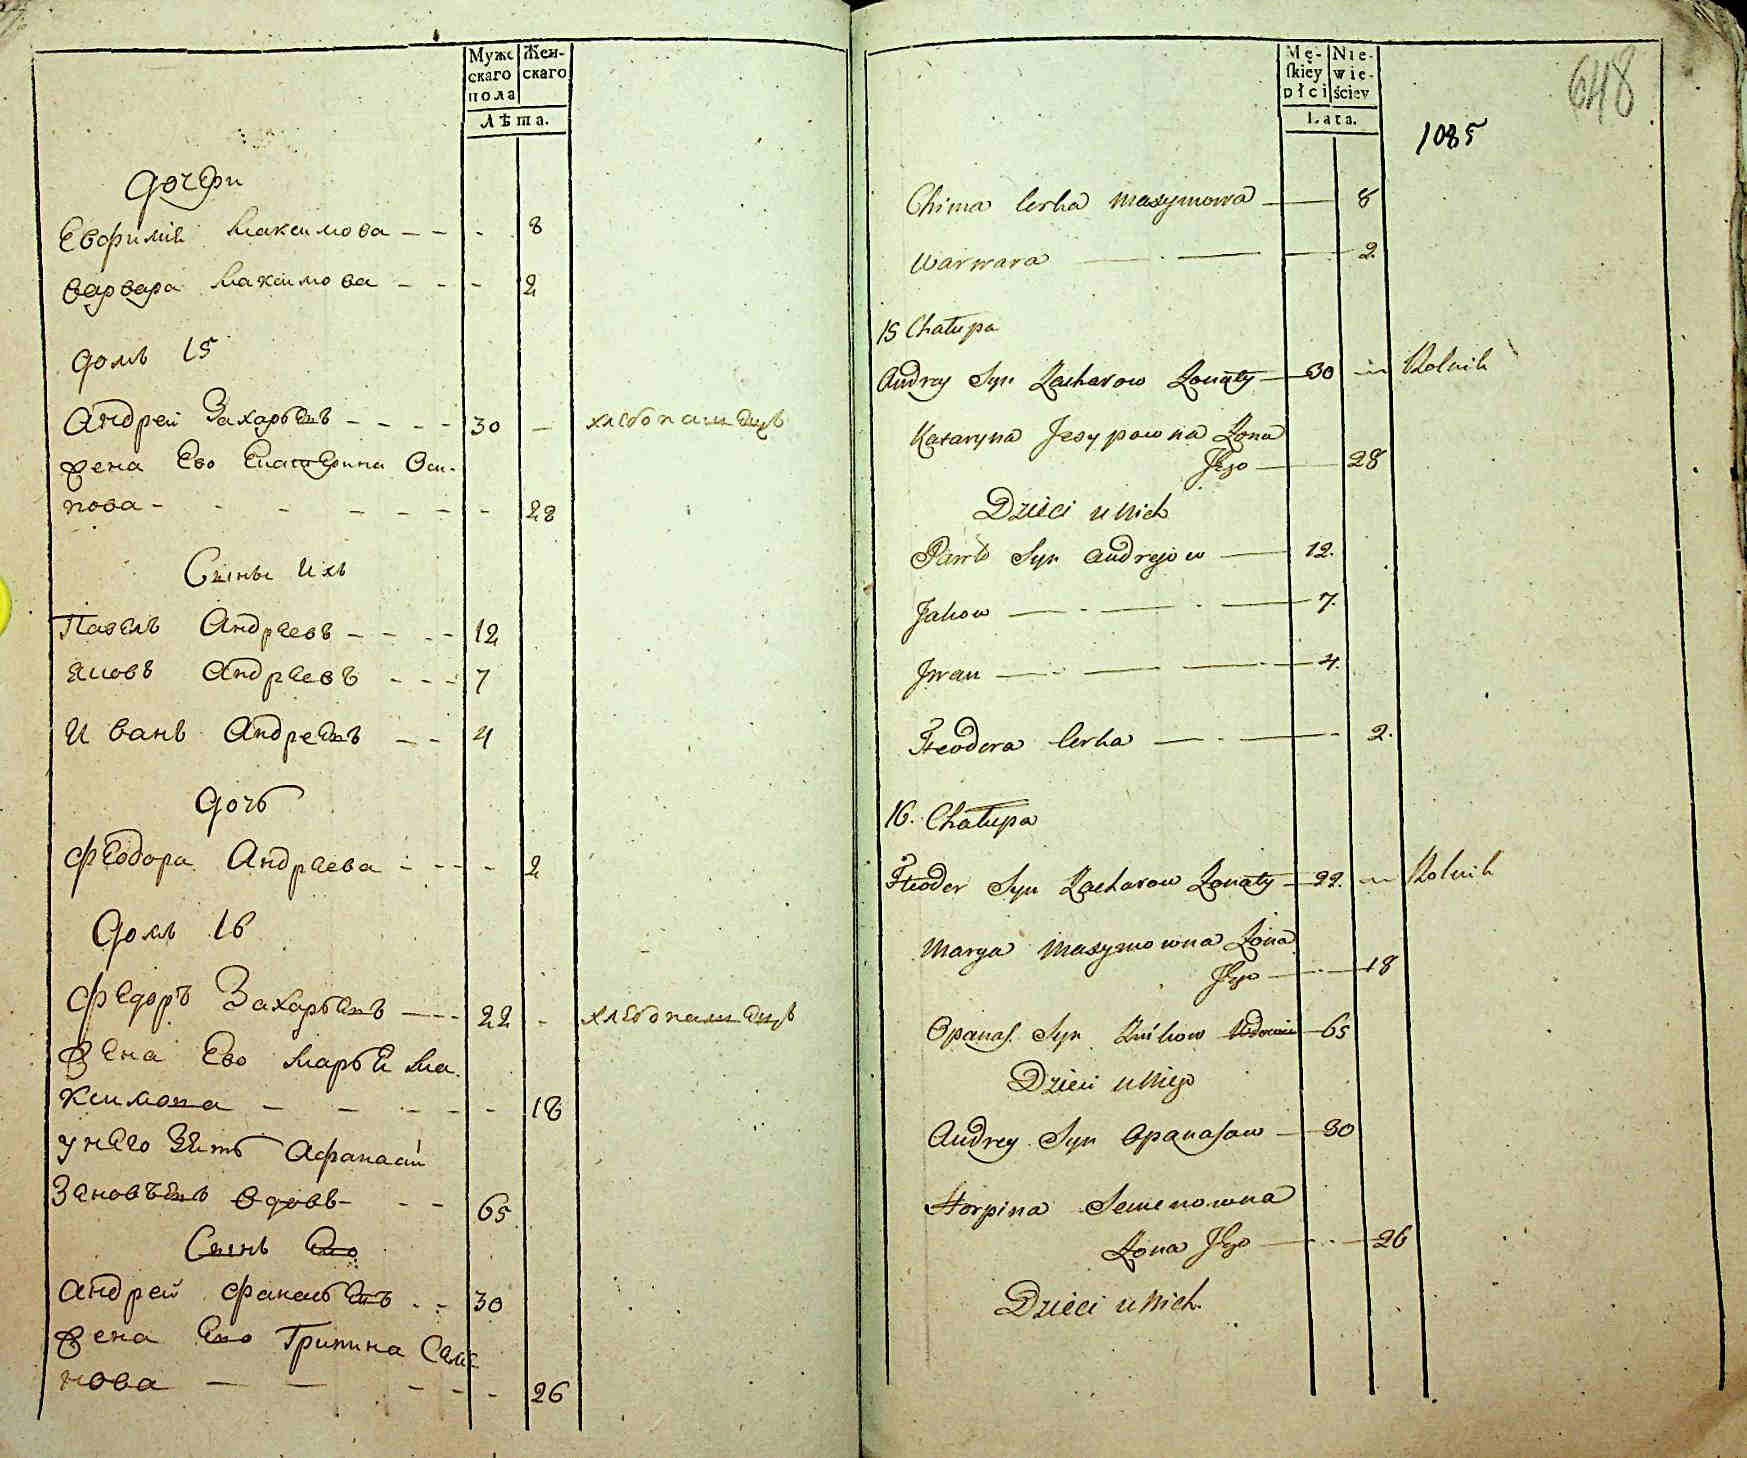 Мужескаго пола
Женскаго
Лѣта.
дочери
Евфимія Максимова - - - 8
Варвара Максимова - - - 2
домъ 15
Андрей Захарьевъ - - - - 30 - хлебопашецъ
жена Ево Екатерина Оси-
пова - - - - - - - 28
Сыны ихъ
Павелъ Андреевъ - - - - 12
Яковъ Андреевъ - - - 7
Иванъ Андреевъ - - 4
дочь
Феодора Андреева - - - - 2
домъ 16
Федоръ Захарьевъ - - - 22 - хлебопашецъ
жена Ево Марья Ма
ксимова - - - - - - 18
у него зять Афанасий
Зеновьевъ вдовъ - - - 65
Сынъ Ево
Андрей Фанасьевъ - - 30
жена Ево Грипина Семе
нова - - - - - - 26
Męskiey płci
Niewieściey
Lata.
648
1085
Chima Corka Maxymowa — 8
Warwara — . — 2.
15 Chałupa
Andrey Syn Zacharow Żonaty — 30 — Rolnik
Katarzyna Jesypowna Żona
Jego — 28
Dzieci u Nich
Pawło Syn Andrejow — 12.
Jakow — . — . — 7.
Jwan — . — . — 4.
Fteodora Corka — . — 2.
16. Chałupa
Fteodor Syn Zacharow Żonaty — 22. — Rolnik
Marya Maxymowna Żona
Jego — . — 18
Opanas Syn Zińkow Wdowiec — 65
Dzieci u Niego
Andrey Syn Opanasow — 30
Horpina Semenowna
Żona Jego — . . — 26
Dzieci u Nich.